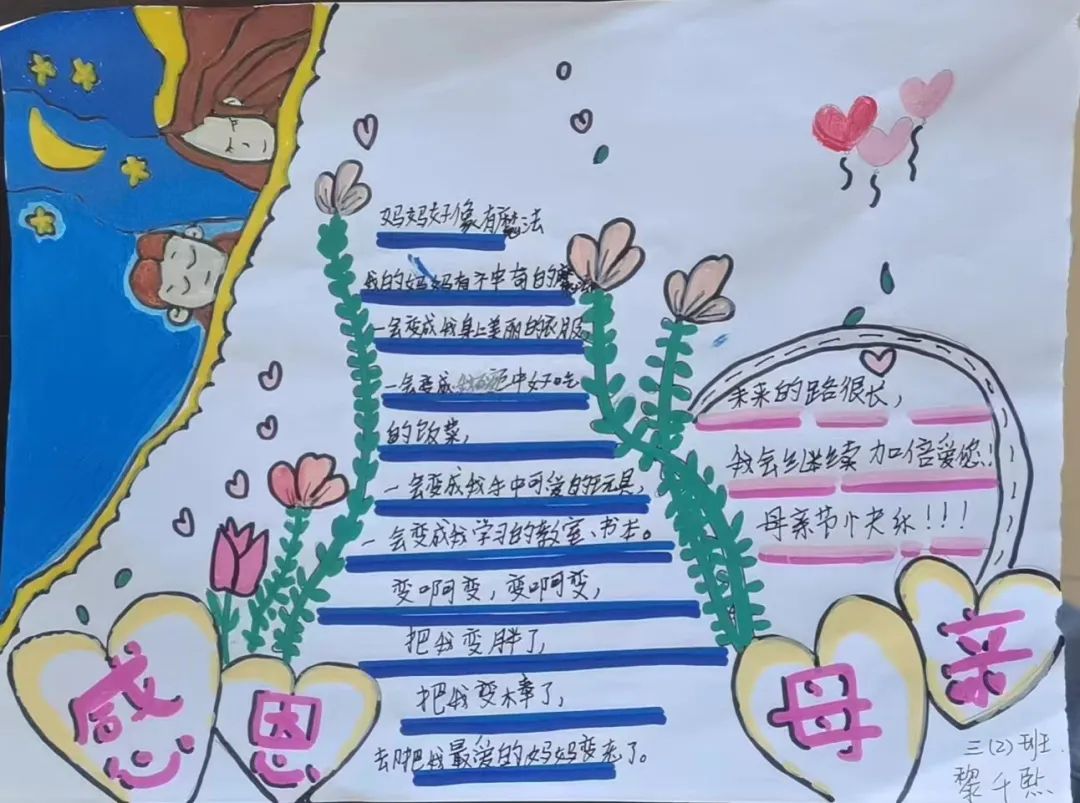 妈妈好像有魔法
我的妈妈有不中苟的魔法
一会变成我身上美丽的衣服,
一会变成 中好吃
的饭菜,
一会变成我手中可爱的玩具,
一会变成我学习的教室、书本。
变啊变,变啊变,
把我变胖了,
把我变棒了,
去把我最爱的妈妈变老了。
未来的路很长,
我会继续加倍爱您!
母亲节快乐!!!
感恩
母亲
三(2)班
黎千熙